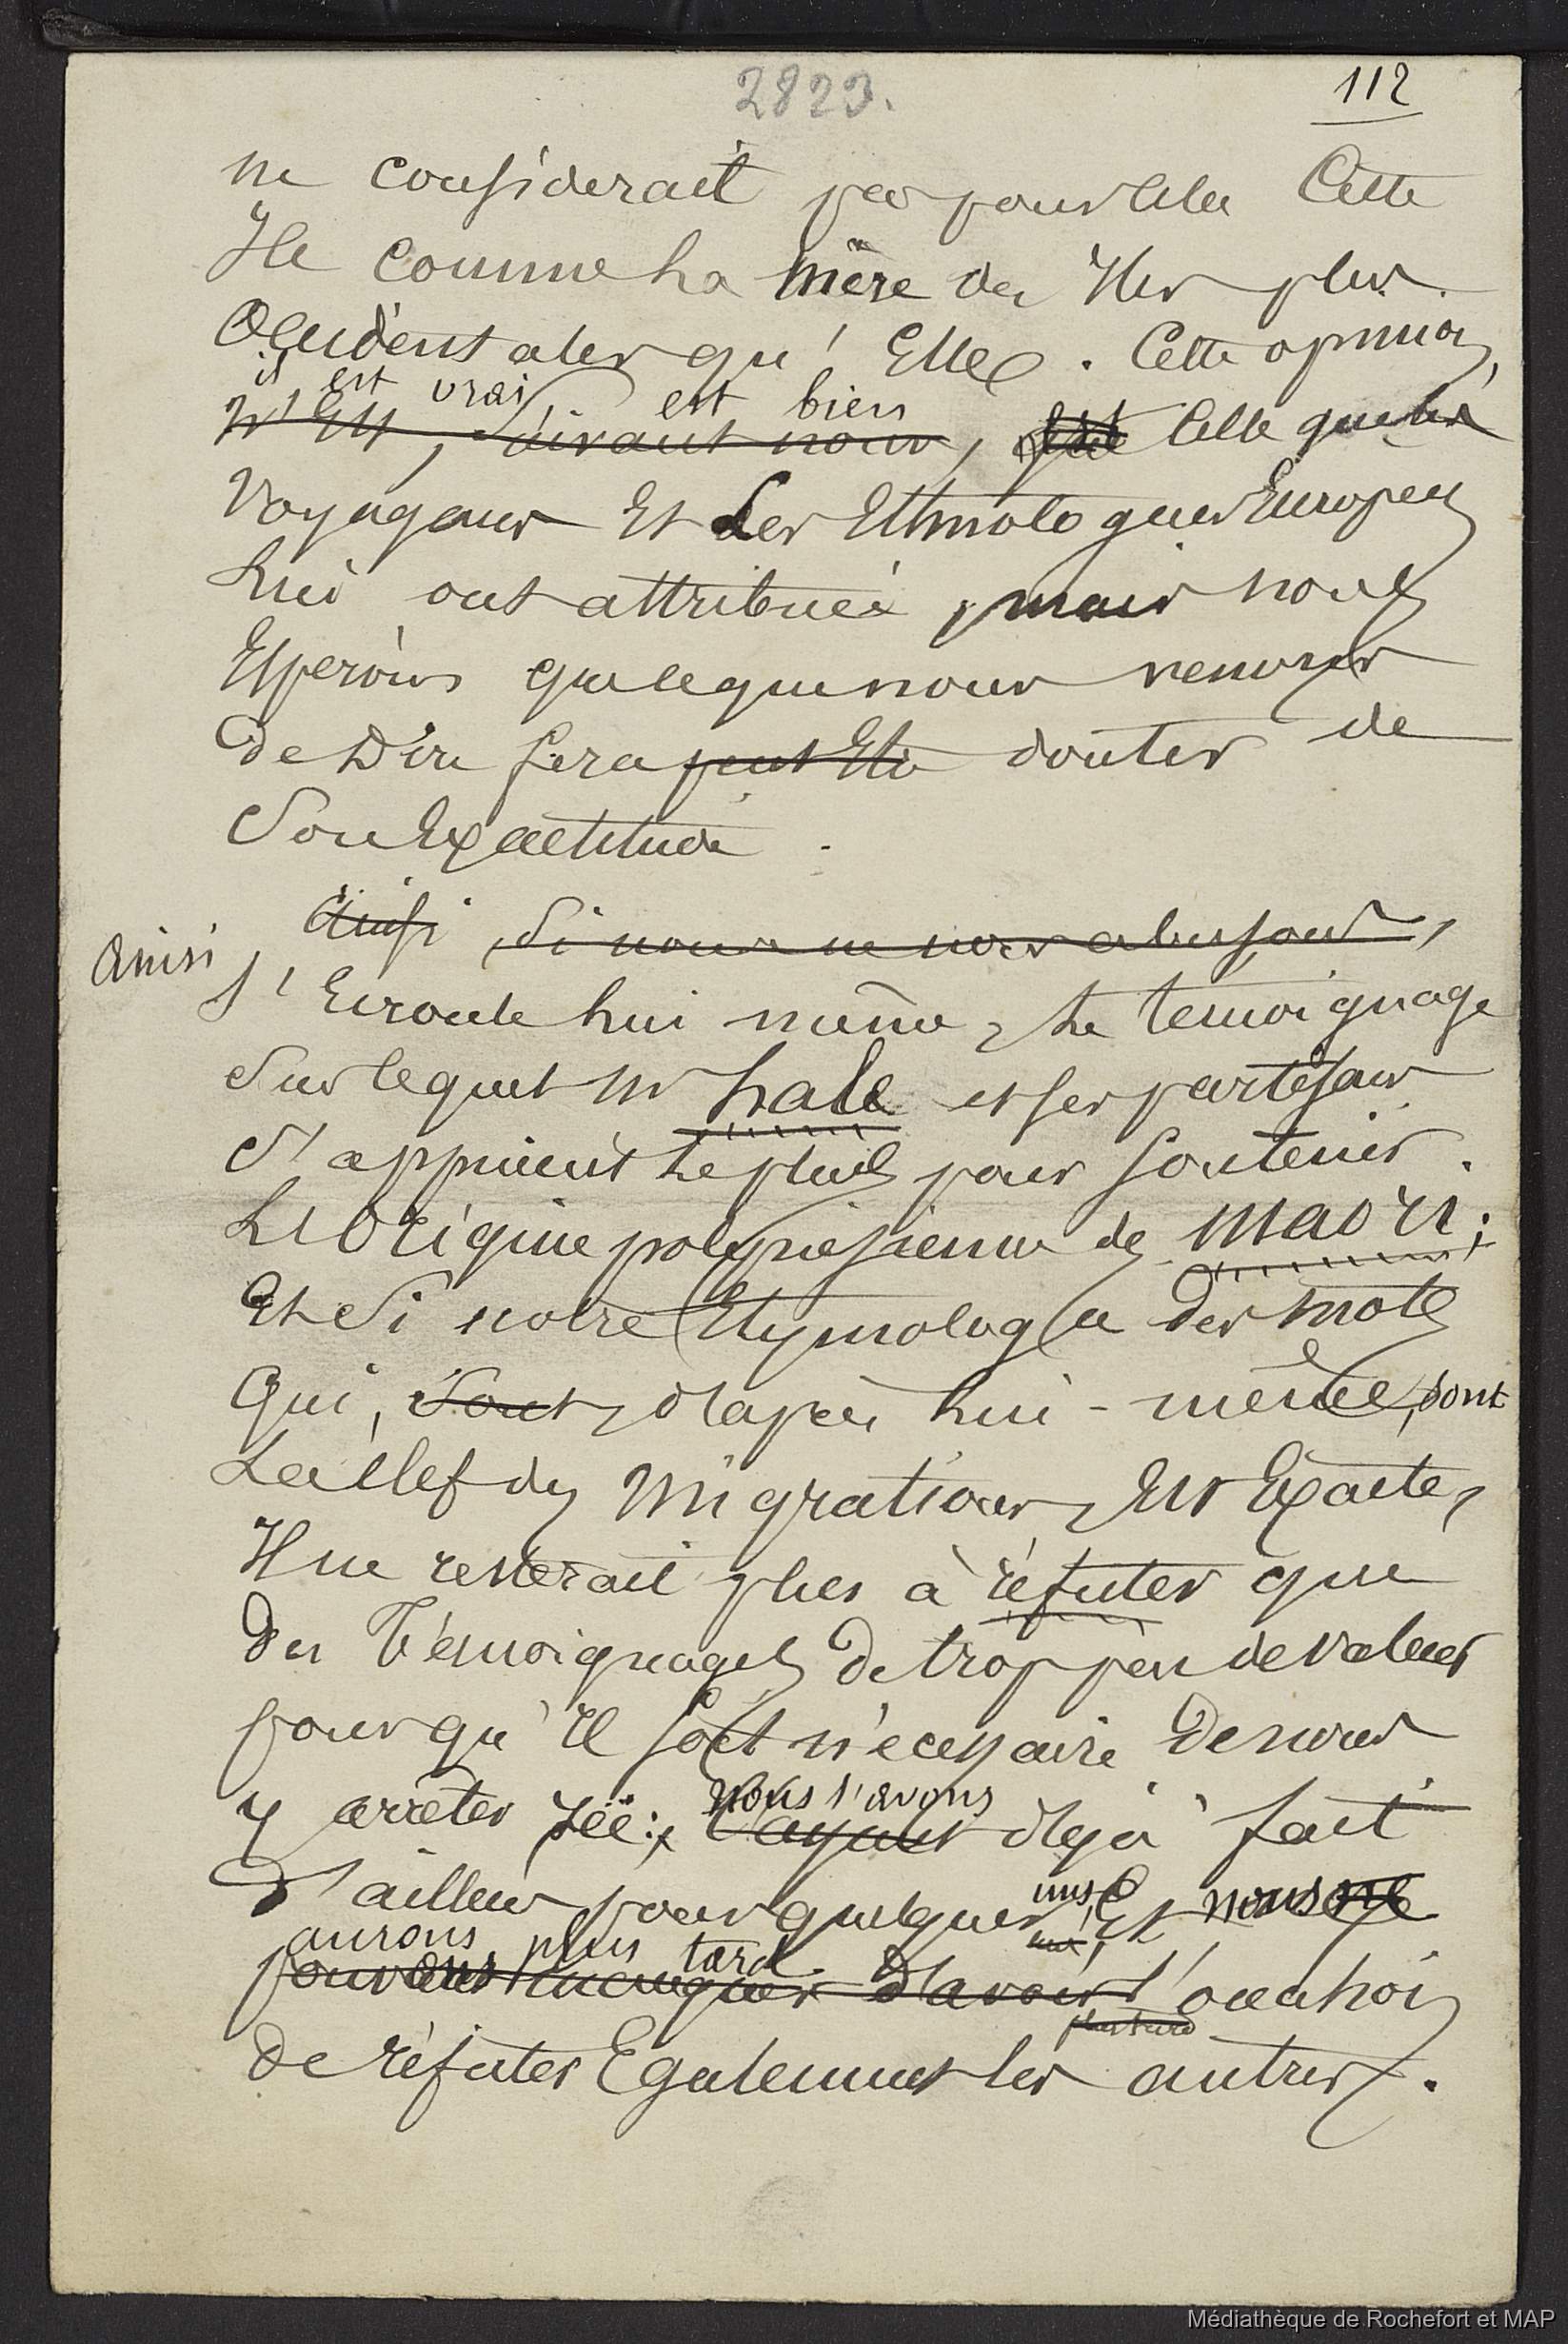 2823.
112
ne considerait pas pour cela Cette
Ile comme la mère des Iles plus
Occidentales qu'Elle. Cette opinion,
il est vrai, est bien
n'Est, suivant nous, que celle que les
Voyageurs Et Les Ethnologues Européens
Lui ont attribuée, mais nous
Espérons que ce que nous venons
de Dire fera peut Etre douter de
Son Exactitude.
Ainsi si nous ne nous abusons,
ainsi
s'Ecroule lui même, le temoignage
Sur lequel Mr hale et ses partisans
S'appuient le plus pour soutenir
L'Origine polynésienne des maori;
Et Si notre Etymologie des mots
Qui, sont, d'après lui-même, sont
La clef des Migrations, Est Exacte,
Il ne resterait plus à réfuter que
des Témoignages de trop peu de valeur
pour qu'il soit nécessaire de nous
nous l'avons
y arrêter ici: l'ayant déjà fait
uns,
d'ailleurs pour quelques uns, Et nous ne
aurons plus tard
pouvons manquer d'avoir l'occasion
plus tard
de réfuter Egalement les autres.
Médiathèque de Rochefort et MAP